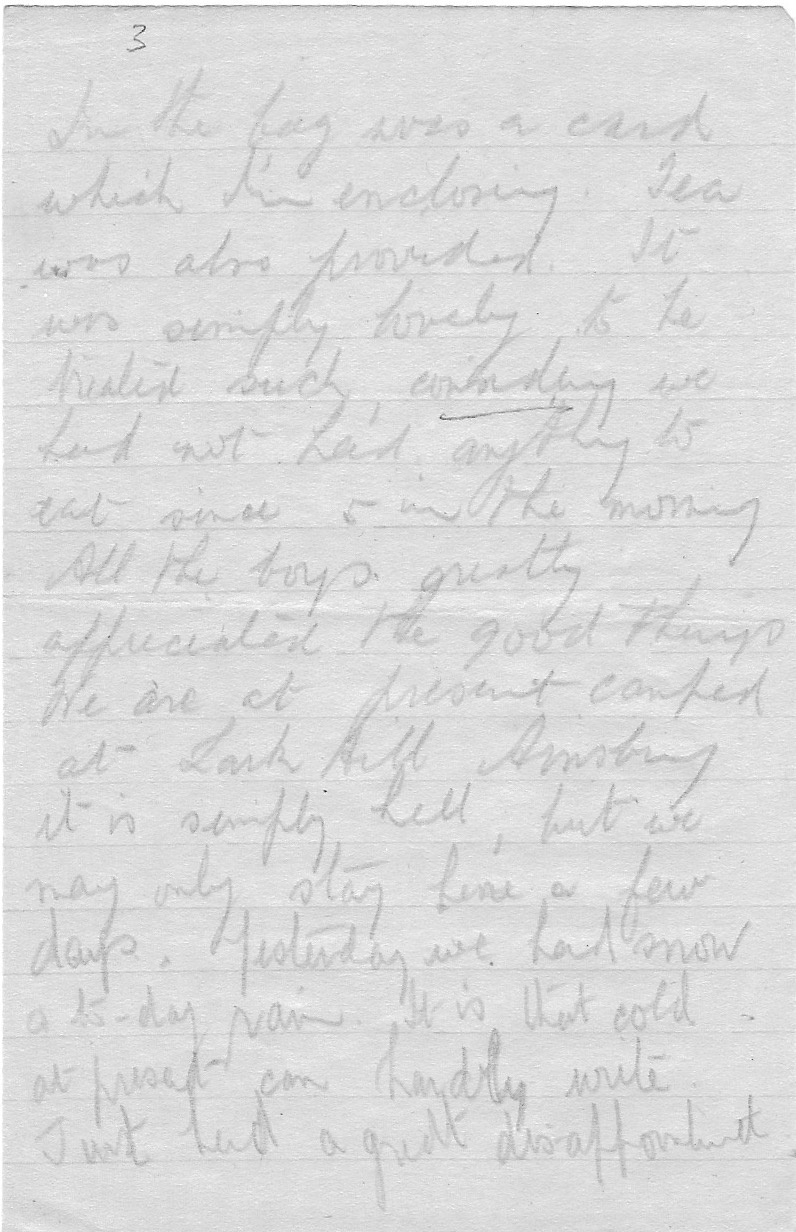 3
In the bag was a card
which I'm enclosing. Tea
was also provided. It
was simply lovely to be
treated such, considering we
had not had anything to
eat since 5 in the morning
All the boys greatly
appreciated the good things
We are at present camped
at Lark Hill Amsbury
it is simply hell, but we
may only stay here a few
days. Yesterday we had snow
a to-day rain. It is that cold
at present can hardly write.
Just had a great disappointment.